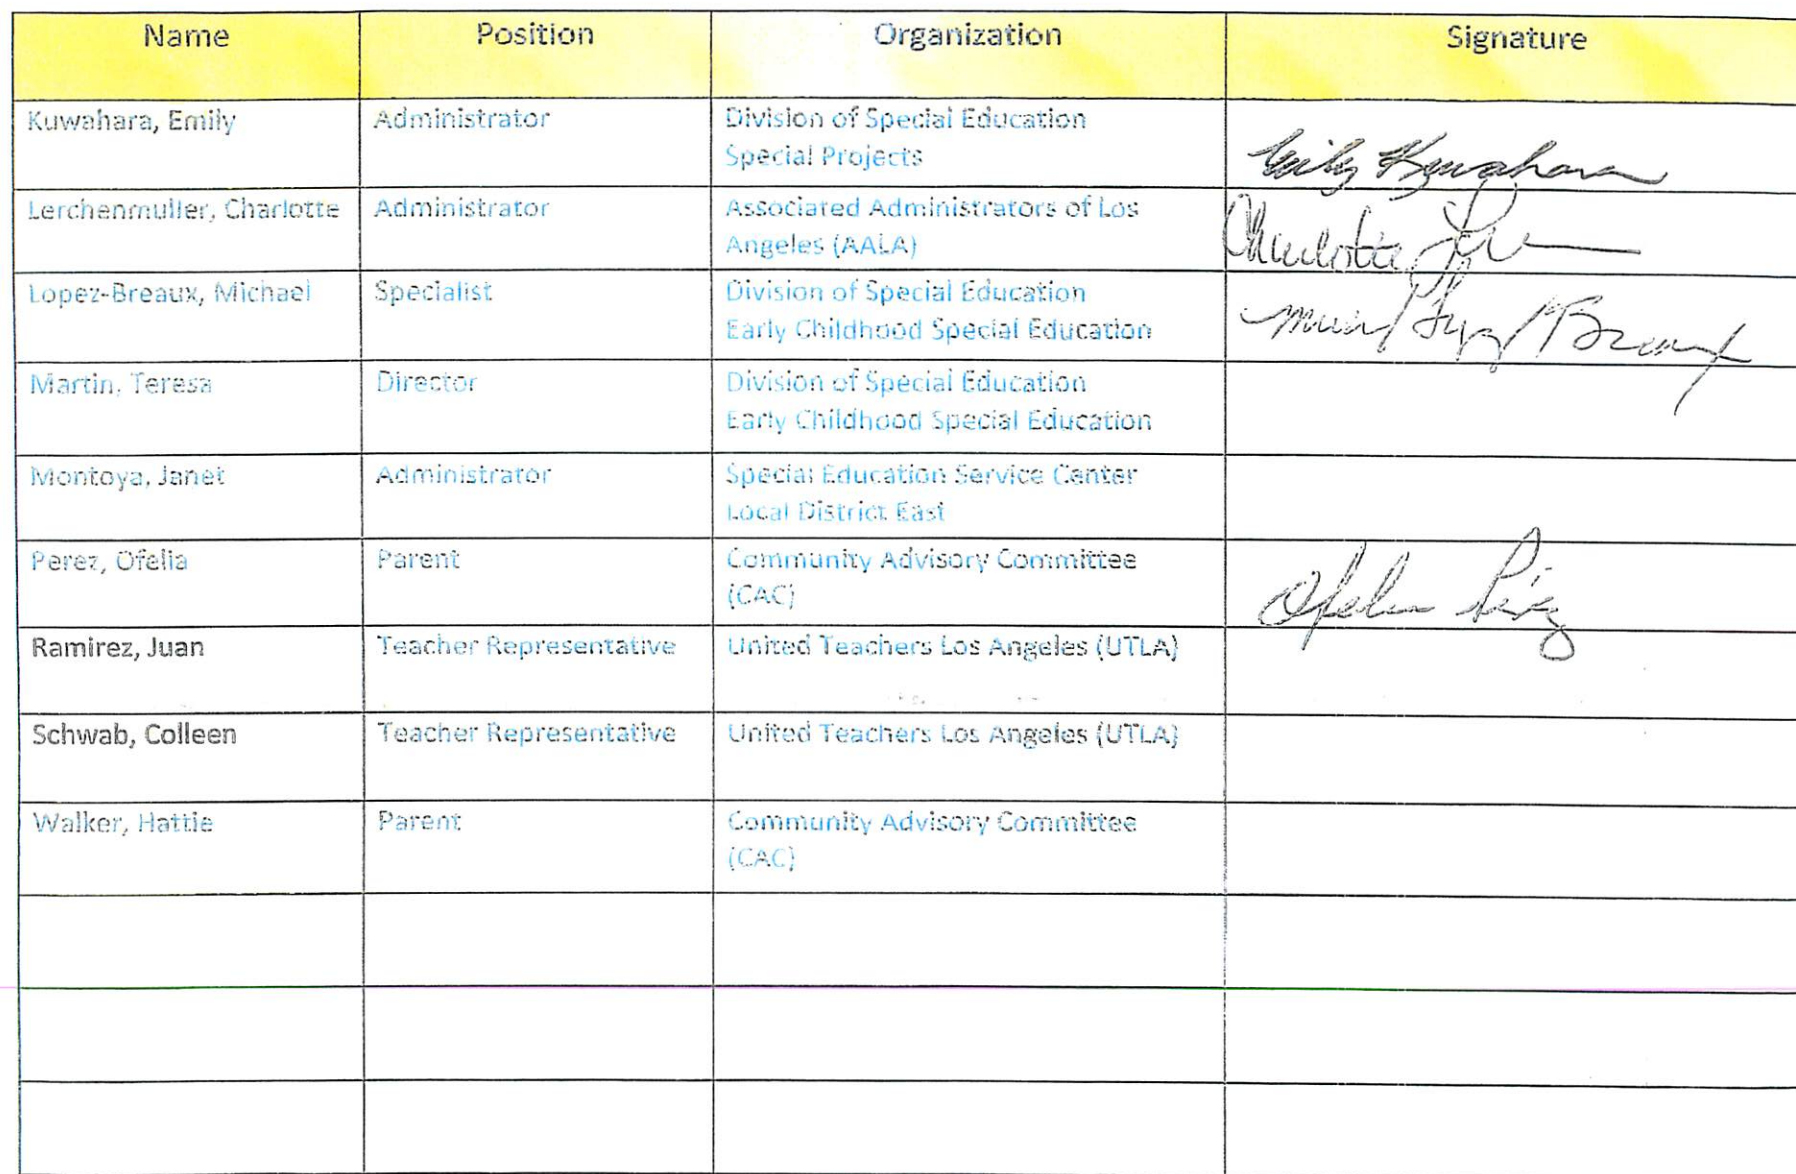 Name Position Organization Signature
Kuwahara, Emily Administrator Division of Special Education
Special Projects
Emily Kuwahara
Lerchenmuller, Charlotte Administrator Associated Administrators of Los
Angeles (AALA)
Charlotte
Lopez-Breaux, Michael Specialist Division of Special Education
Early Childhood Special Education
Breaux
Martin, Teresa Director Division of Special Education
Early Childhood Special Education
Montoya, Janet Administrator Special Education Service Center
Local District East
Perez, Ofelia Parent Community Advisory Committee
(CAC)
Ofelia Pérez
Ramirez, Juan Teacher Representative United Teachers Los Angeles (UTLA)
Schwab, Colleen Teacher Representative United Teachers Los Angeles (UTLA)
Walker, Hattie Parent Community Advisory Committee
(CAC)